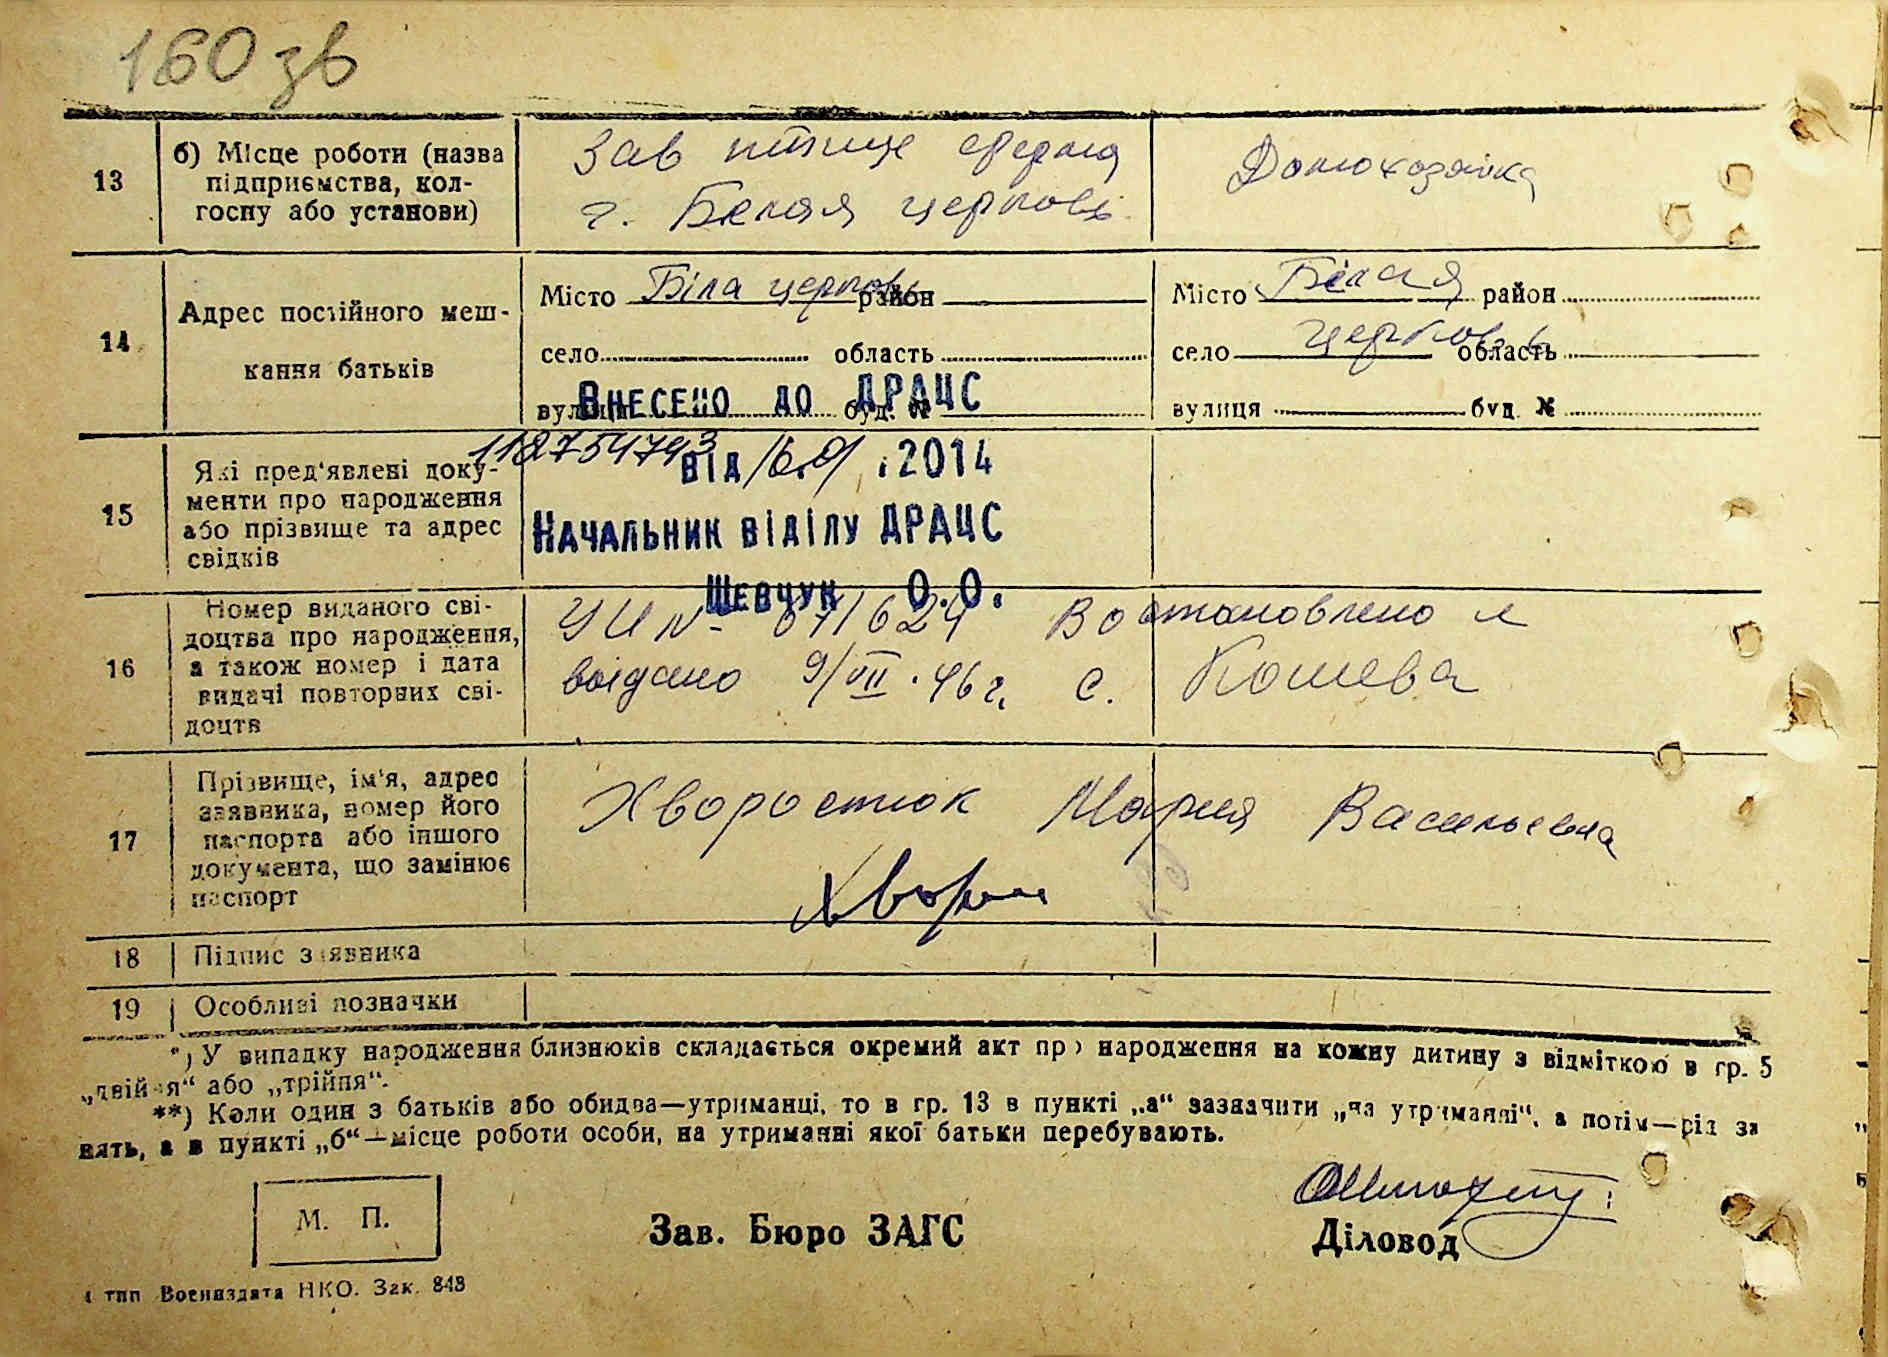 160 зв
13
б) Місце роботи (назва
підприємства, кол-
госпу або установи)
Зав птице ферма
г. Белая церковь
Домохозяйка
14
Адрес постійного меш-
кання батьків
Місто Біла церковь район
село область
вулиця буд. №
Місто Белая район
село церковь область
вулиця буд. №
Внесено до ДРАЦС
118754743 від 16.01.2014
Начальник відділу ДРАЦС
Шевчук О.О.
15
Які пред'явлені доку-
менти про народження
або прізвище та адрес
свідків
16
Номер виданого сві-
доцтва про народження,
а також номер і дата
видачі повторних сві-
доцтв
УИ № 071624 Востановлено
выдано 9/VII.46 г. с. Кошева
17
Прізвище, ім'я, адрес
заявника, номер його
паспорта або іншого
документа, що замінює
паспорт
Хворостюк Мария Васильевна
18
Підпис заявника
19
Особливі позначки
*) У випадку народження близнюків складається окремий акт про народження на кожну дитину з відміткою в гр. 5
„двійня“ або „трійня“.
**) Коли один з батьків або обидва—утриманці, то в гр. 13 в пункті „а“ зазначити „на утриманні“, а потім—рід за
нять, а в пункті „б“—місце роботи особи, на утриманні якої батьки перебувають.
М. П.
Зав. Бюро ЗАГС
Діловод
1 тип Воениздата НКО. Зак. 843